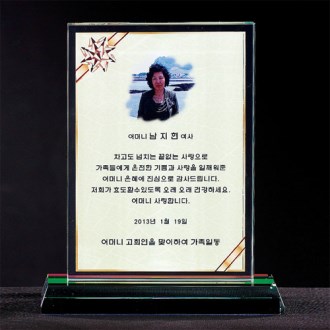 어머니 남지현 여사
차고도 넘치는 끝없는 사랑으로
가족들에게 온전한 기쁨과 사랑을 일깨워준
어머니 은혜에 진심으로 감사드립니다.
저희가 효도할수있도록 오래 오래 건강하세요.
어머니 사랑합니다.
2013년 1월 19일
어머니 고희연을 맞이하여 가족일동